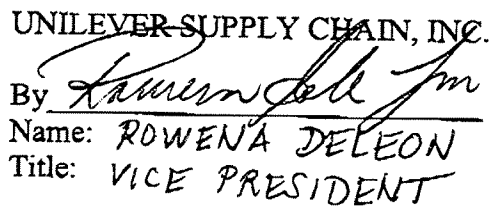 UNILEVER SUPPLY CHAIN, INC.
By
Name: ROWENA DELEON
Title: VICE PRESIDENT